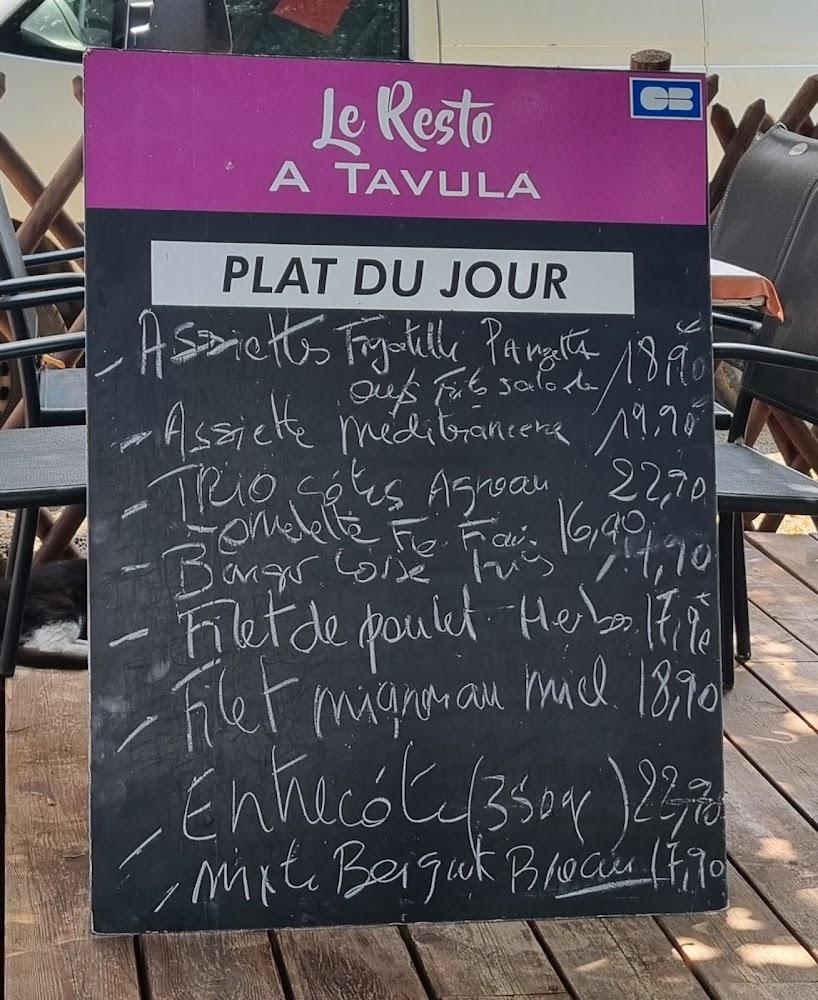 Le Resto
A TAVULA
CB
PLAT DU JOUR
- Assiettes Figatelli Panzetta 18,90€
oeufs frites salade
- Assiette méditerranéene 19,90
- TRIO côtes Agneau 22,90
omelette 16,90
- Burger Corse Frites ,90
- Filet de poulet Herbes 17,90
- Filet mignon au miel 18,90
- Entrecôte (350gr) 22,90
- mixte 17,90